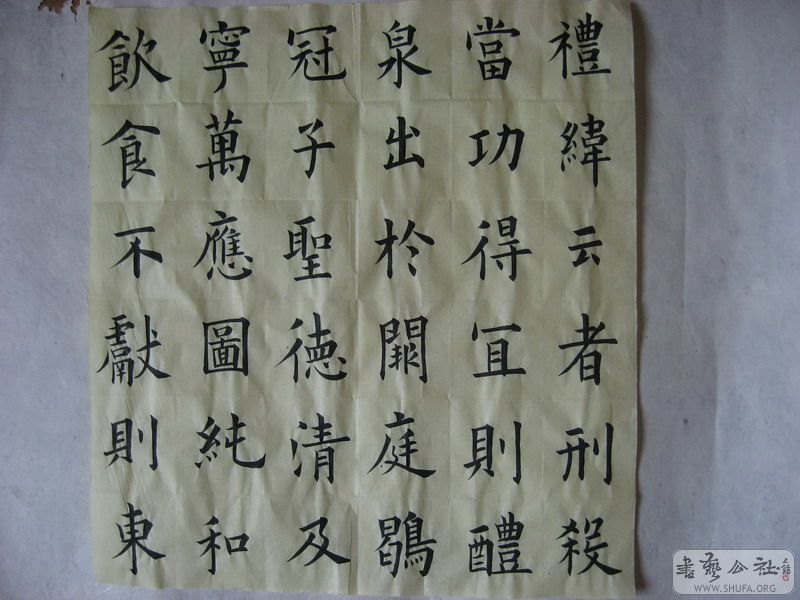 禮緯云者刑殺
當功得宜則醴
泉出於闕庭鶡
冠子聖德清及
寧萬應圖純和
飲食不獻則東
書藝公社
WWW.SHUFA.ORG